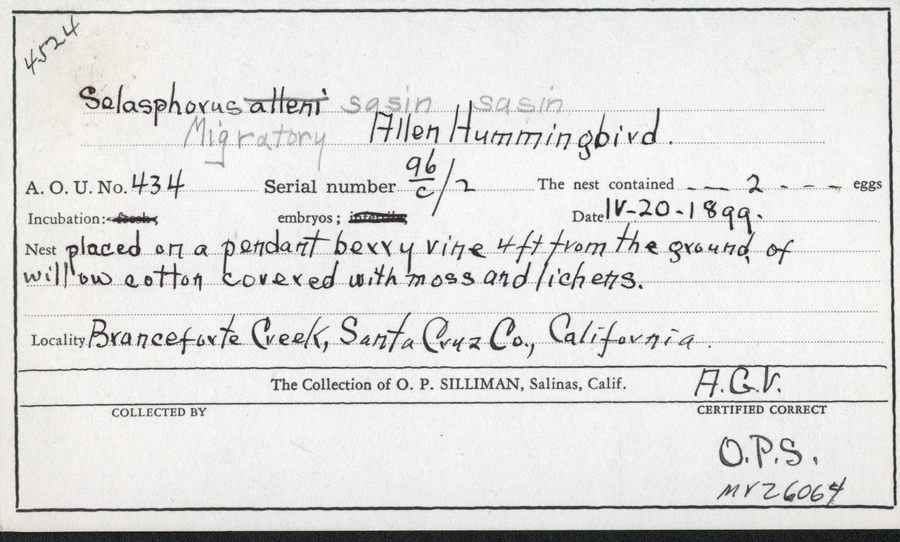 4524
Selasphorus alleni sasin sasin
Migratory Allen Hummingbird.
A. O. U. No. 434 Serial number 96/c/2 The nest contained - — 2 - - - eggs
Incubation: fresh; embryos; Date IV-20-1899.
Nest placed on a pendant berry vine 4ft from the ground, of
willow cotton covered with moss and lichens.
Locality Branceforte Creek, Santa Cruz Co., California.
The Collection of O. P. SILLIMAN, Salinas, Calif. A.G.V.
COLLECTED BY CERTIFIED CORRECT
O.P.S.
MVZ6064